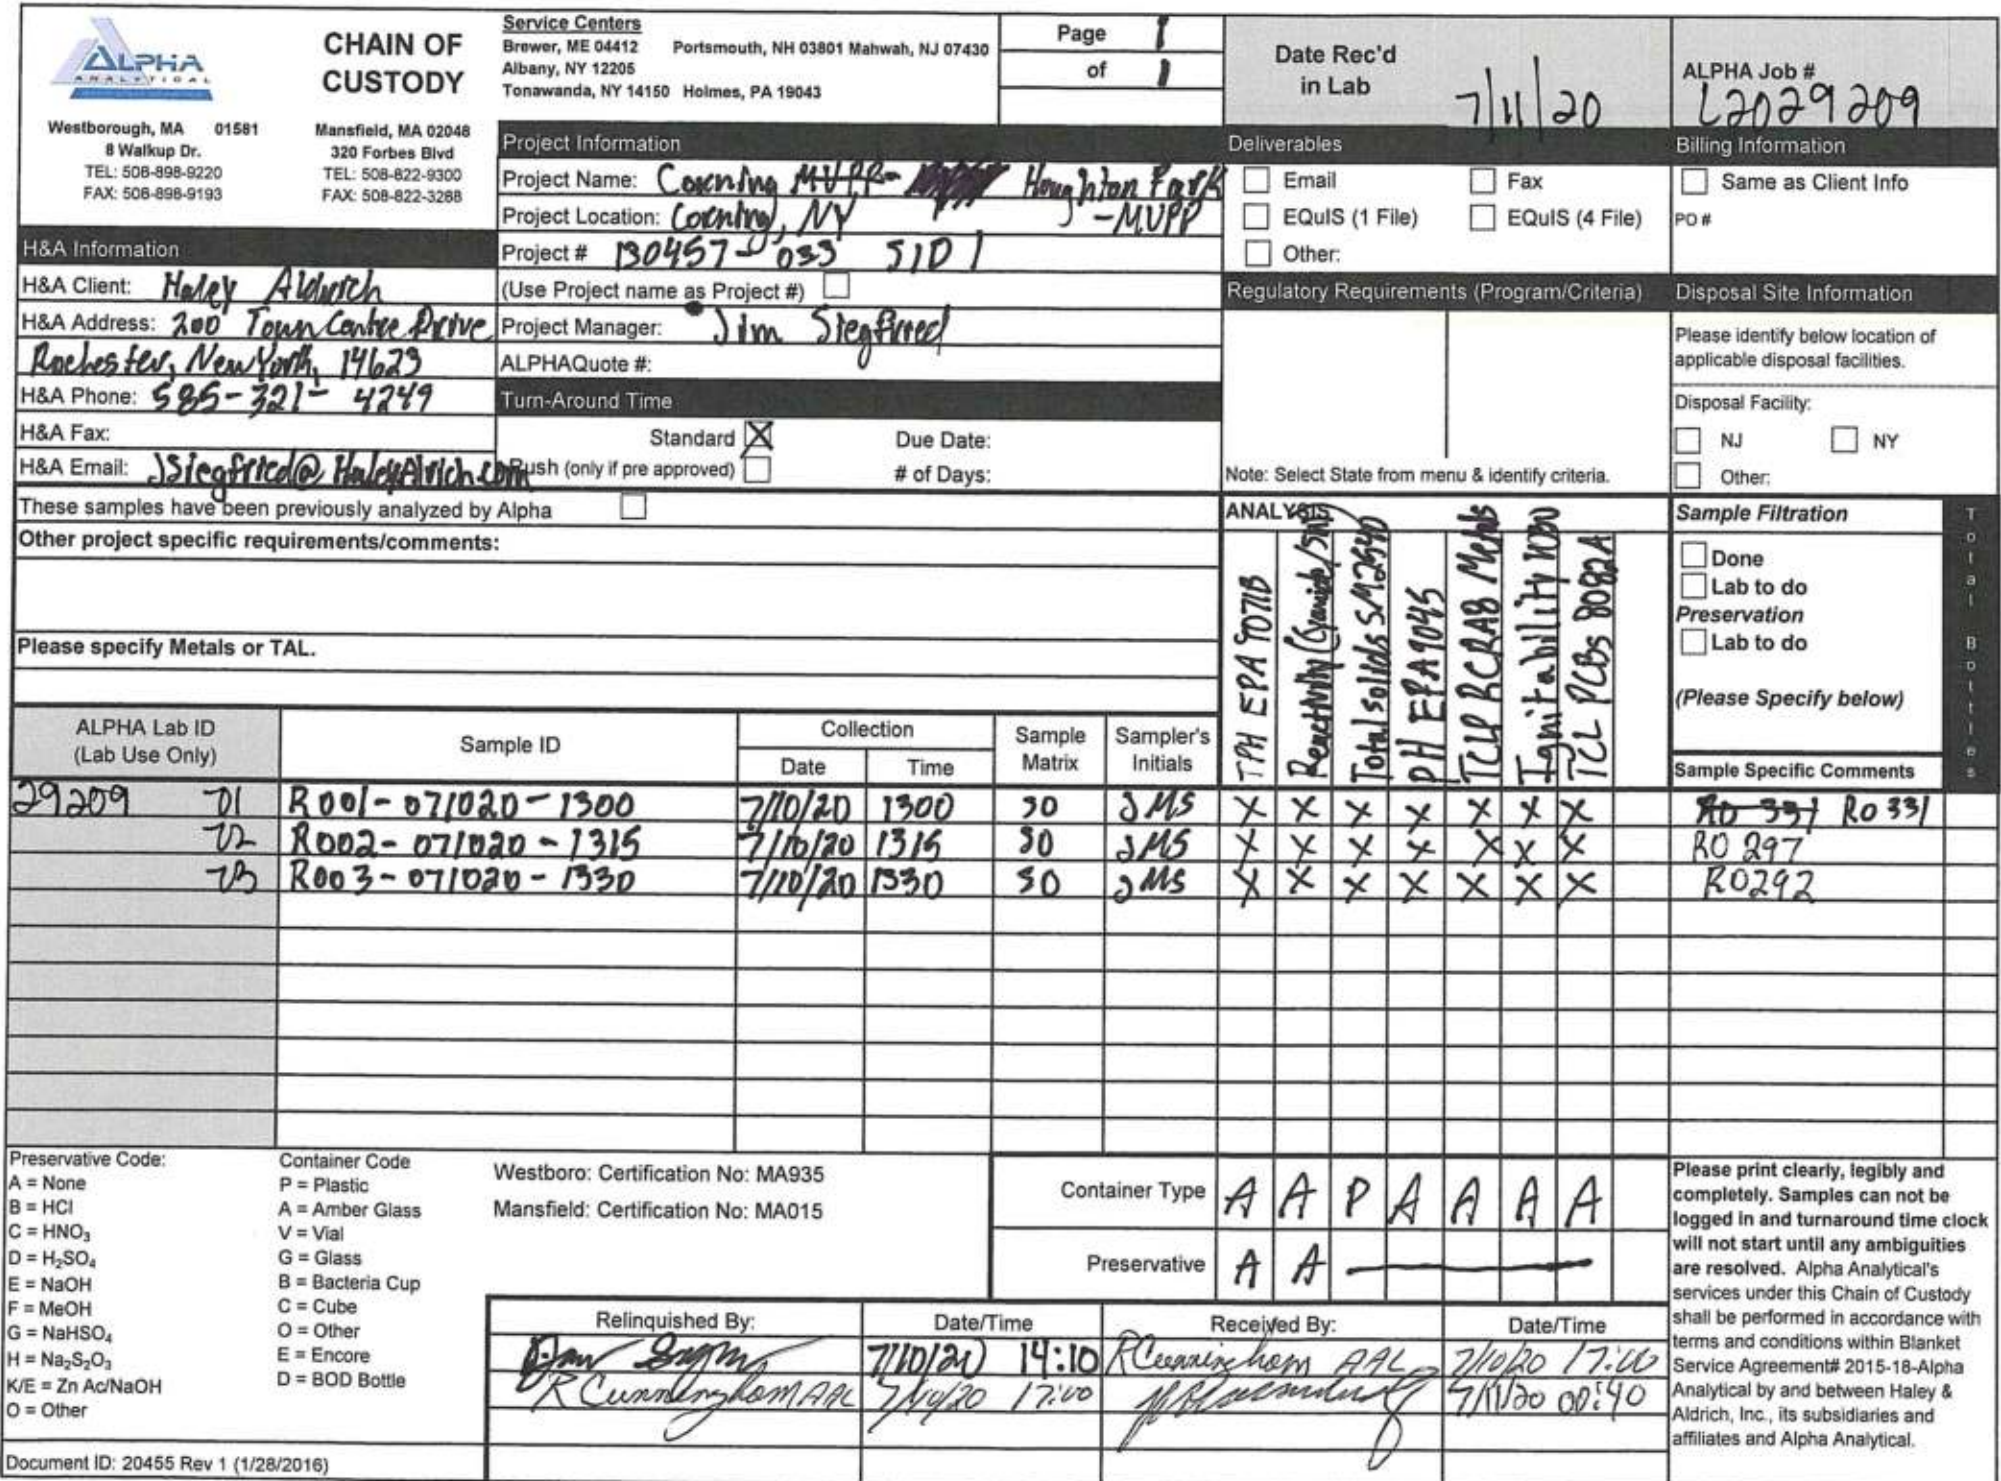 ALPHA
ANALYTICAL
CHAIN OF
CUSTODY
Westborough, MA 01581
8 Walkup Dr.
TEL: 508-898-9220
FAX: 508-898-9193
Mansfield, MA 02048
320 Forbes Blvd
TEL: 508-822-9300
FAX: 508-822-3288
Service Centers
Brewer, ME 04412 Portsmouth, NH 03801 Mahwah, NJ 07430
Albany, NY 12205
Tonawanda, NY 14150 Holmes, PA 19043
Page 1
of 1
Date Rec'd
in Lab
7/11/20
ALPHA Job #
L2029209
H&A Information
H&A Client: Haley Aldrich
H&A Address: 200 Town Centre Drive
Rochester, New York, 14623
H&A Phone: 585-321-4249
H&A Fax:
H&A Email: JSiegfried@HaleyAlrich.com
Project Information
Project Name: Corning MVPP- Houghton Park
-MVPP
Project Location: Corning, NY
Project # 130457-033 SID 1
(Use Project name as Project #)
Project Manager: Jim Siegfried
ALPHAQuote #:
Turn-Around Time
Standard X Due Date:
Rush (only if pre approved) # of Days:
Deliverables
Email Fax
EQuIS (1 File) EQuIS (4 File)
Other:
Regulatory Requirements (Program/Criteria)
Note: Select State from menu & identify criteria.
Billing Information
Same as Client Info
PO #
Disposal Site Information
Please identify below location of
applicable disposal facilities.
Disposal Facility:
NJ NY
Other:
These samples have been previously analyzed by Alpha
Other project specific requirements/comments:
Please specify Metals or TAL.
ANALYSIS
TPH EPA 9071B
Reactivity (Cyanide/
Total solids SM2540
pH EPA9045
TCLP RCRA8 Metals
Ignitability 1030
TCL PCBs 8082A
Sample Filtration
Done
Lab to do
Preservation
Lab to do
(Please Specify below)
Total Bottles
ALPHA Lab ID
(Lab Use Only)
Sample ID
Collection
Date Time
Sample
Matrix
Sampler's
Initials
Sample Specific Comments
29209 01 R001-071020-1300 7/10/20 1300 SO JMS X X X X X X X RO 331 RO 331
02 R002-071020-1315 7/10/20 1315 SO JMS X X X X X X X RO 297
03 R003-071020-1330 7/10/20 1330 SO JMS X X X X X X X RO292
Preservative Code:
A = None
B = HCl
C = HNO₃
D = H₂SO₄
E = NaOH
F = MeOH
G = NaHSO₄
H = Na₂S₂O₃
K/E = Zn Ac/NaOH
O = Other
Container Code
P = Plastic
A = Amber Glass
V = Vial
G = Glass
B = Bacteria Cup
C = Cube
O = Other
E = Encore
D = BOD Bottle
Westboro: Certification No: MA935
Mansfield: Certification No: MA015
Container Type A A P A A A A
Preservative A A
Relinquished By: Date/Time Received By: Date/Time
7/10/20 14:10 RCunningham AAL 7/10/20 17:00
R Cunningham AAL 7/10/20 17:00 7/11/20 00:40
Please print clearly, legibly and
completely. Samples can not be
logged in and turnaround time clock
will not start until any ambiguities
are resolved. Alpha Analytical's
services under this Chain of Custody
shall be performed in accordance with
terms and conditions within Blanket
Service Agreement# 2015-18-Alpha
Analytical by and between Haley &
Aldrich, Inc., its subsidiaries and
affiliates and Alpha Analytical.
Document ID: 20455 Rev 1 (1/28/2016)